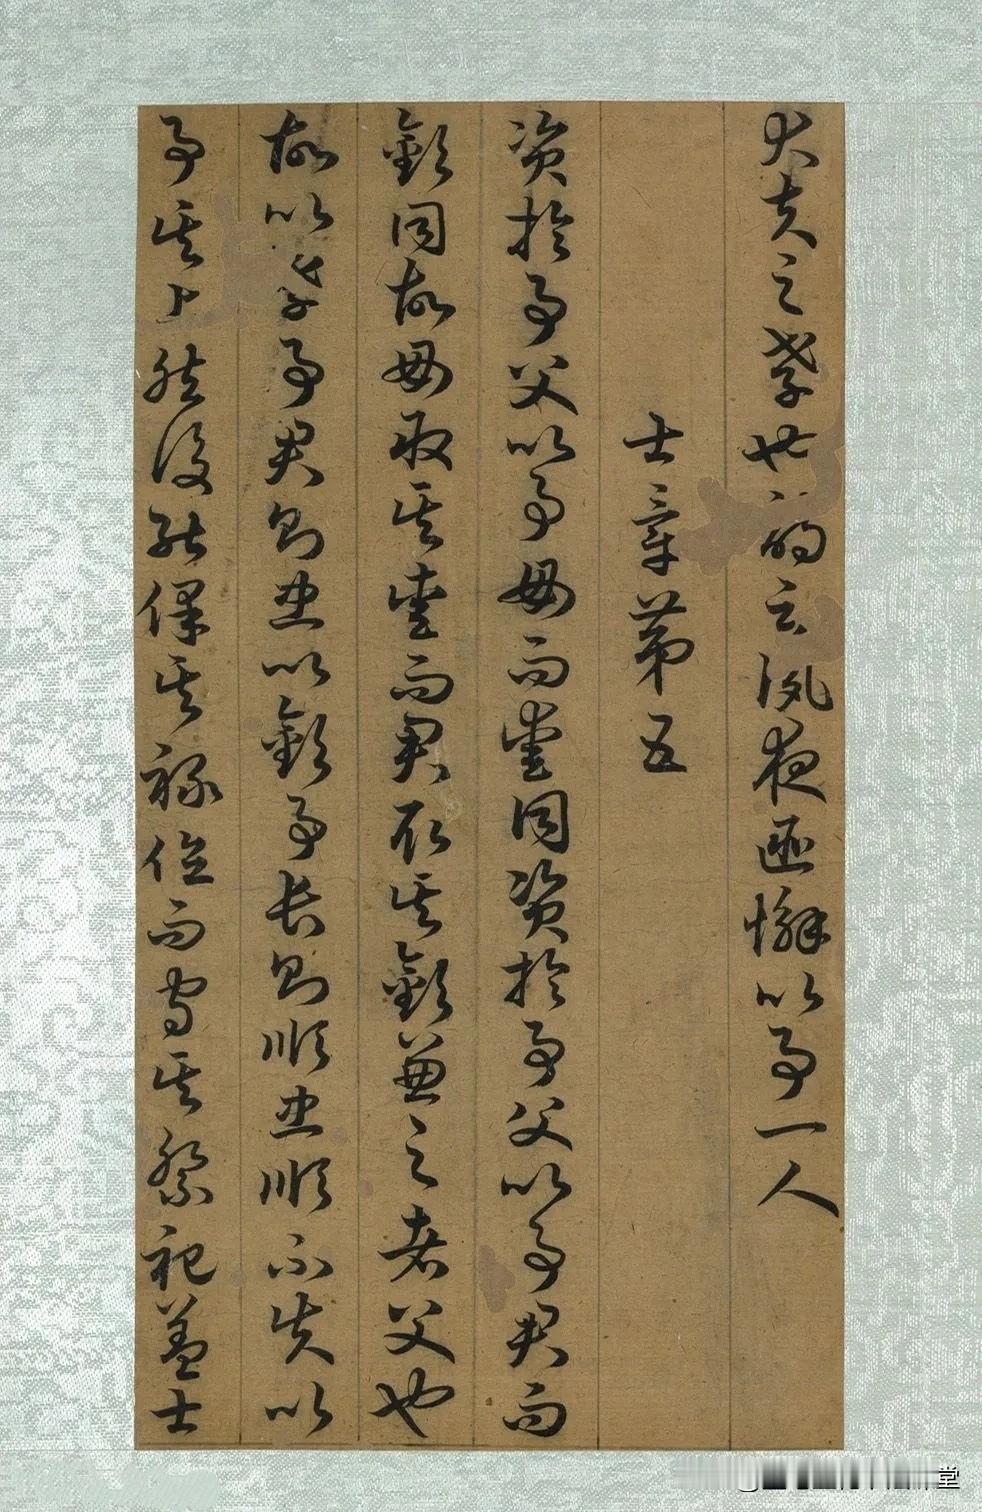 大夫之孝也詩云夙夜匪懈以事一人
士章第五
資於事父以事母而愛同資於事父以事君而
敬同故母取其愛而君取其敬兼之者父也
故以孝事君則忠以敬事長則順忠順不失以
事其上然後能保其祿位而守其祭祀蓋士
堂